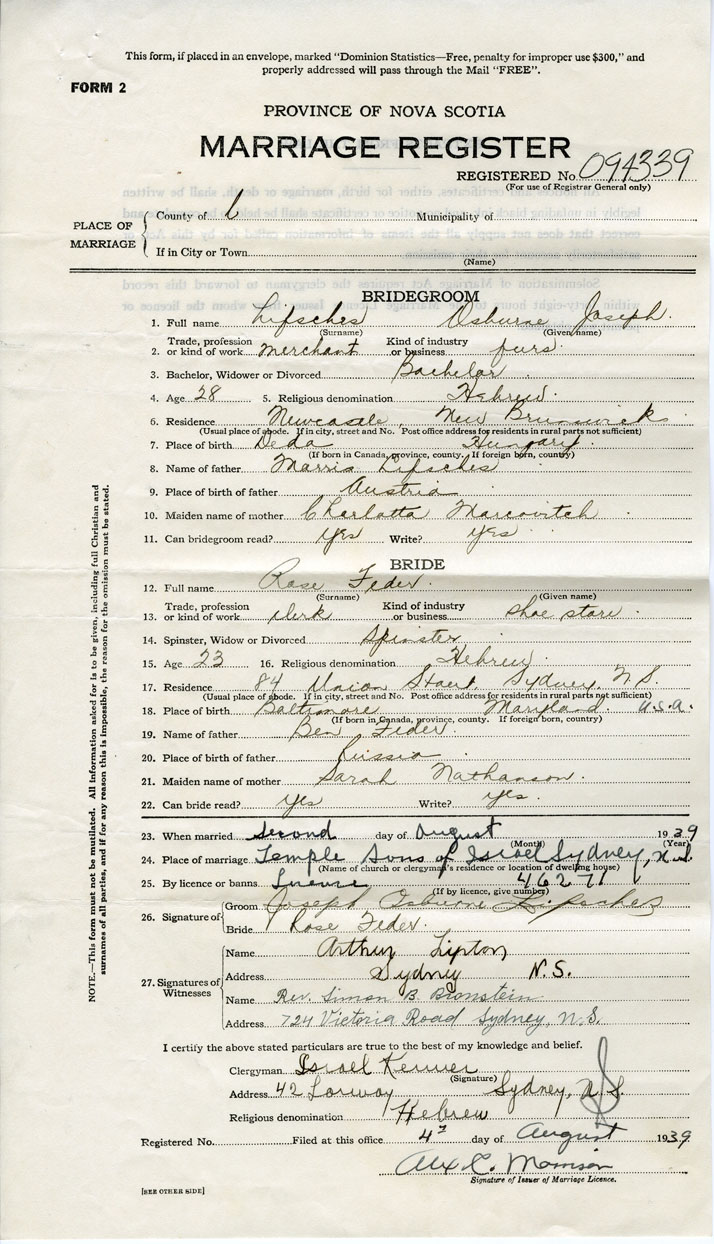 This form, if placed in an envelope, marked "Dominion Statistics—Free, penalty for improper use $300," and
properly addressed will pass through the Mail "FREE".
FORM 2
PROVINCE OF NOVA SCOTIA
MARRIAGE REGISTER
REGISTERED No. 094339
(For use of Registrar General only)
PLACE OF MARRIAGE
County of Municipality of
If in City or Town
(Name)
BRIDEGROOM
1. Full name Lifsches Osburne Joseph
(Surname) (Given name)
2. Trade, profession or kind of work merchant Kind of industry or business furs
3. Bachelor, Widower or Divorced Bachelor
4. Age 28 5. Religious denomination Hebrew
6. Residence Newcastle, New Brunswick
(Usual place of abode. If in city, street and No. Post office address for residents in rural parts not sufficient)
7. Place of birth Deda Hungary
(If born in Canada, province, county. If foreign born, country)
8. Name of father Morris Lifsches
9. Place of birth of father Austria
10. Maiden name of mother Charlotta Marcovitch
11. Can bridegroom read? Yes Write? Yes
BRIDE
12. Full name Rose Feder
(Surname) (Given name)
13. Trade, profession or kind of work clerk Kind of industry or business shoe store
14. Spinster, Widow or Divorced Spinster
15. Age 23 16. Religious denomination Hebrew
17. Residence 84 Union Street, Sydney, N.S.
(Usual place of abode. If in city, street and No. Post office address for residents in rural parts not sufficient)
18. Place of birth Baltimore Maryland U.S.A.
(If born in Canada, province, county. If foreign born, country)
19. Name of father Ben Feder
20. Place of birth of father Russia
21. Maiden name of mother Sarah Nathanson
22. Can bride read? Yes Write? Yes
23. When married Second day of August 1939
(Month) (Year)
24. Place of marriage Temple Sons of Israel Sydney, N.S.
(Name of church or clergyman's residence or location of dwelling house)
25. By licence or banns 46271
(If by licence, give number)
26. Signature of
Groom Joseph Osburne
Bride Rose Feder
27. Signatures of Witnesses
Name Arthur Lipton
Address Sydney N.S.
Name Rev. Simon B. Bronstein
Address 724 Victoria Road Sydney, N.S.
I certify the above stated particulars are true to the best of my knowledge and belief.
Clergyman Israel
(Signature)
Address 42 Lorway Sydney, N.S.
Religious denomination Hebrew
Registered No. Filed at this office 4 day of August 1939
Alex C. Morrison
Signature of Issuer of Marriage Licence.
[SEE OTHER SIDE]
NOTE.—This form must not be mutilated. All information asked for is to be given, including full Christian and
surnames of all parties, and if for any reason this is impossible, the reason for the omission must be stated.